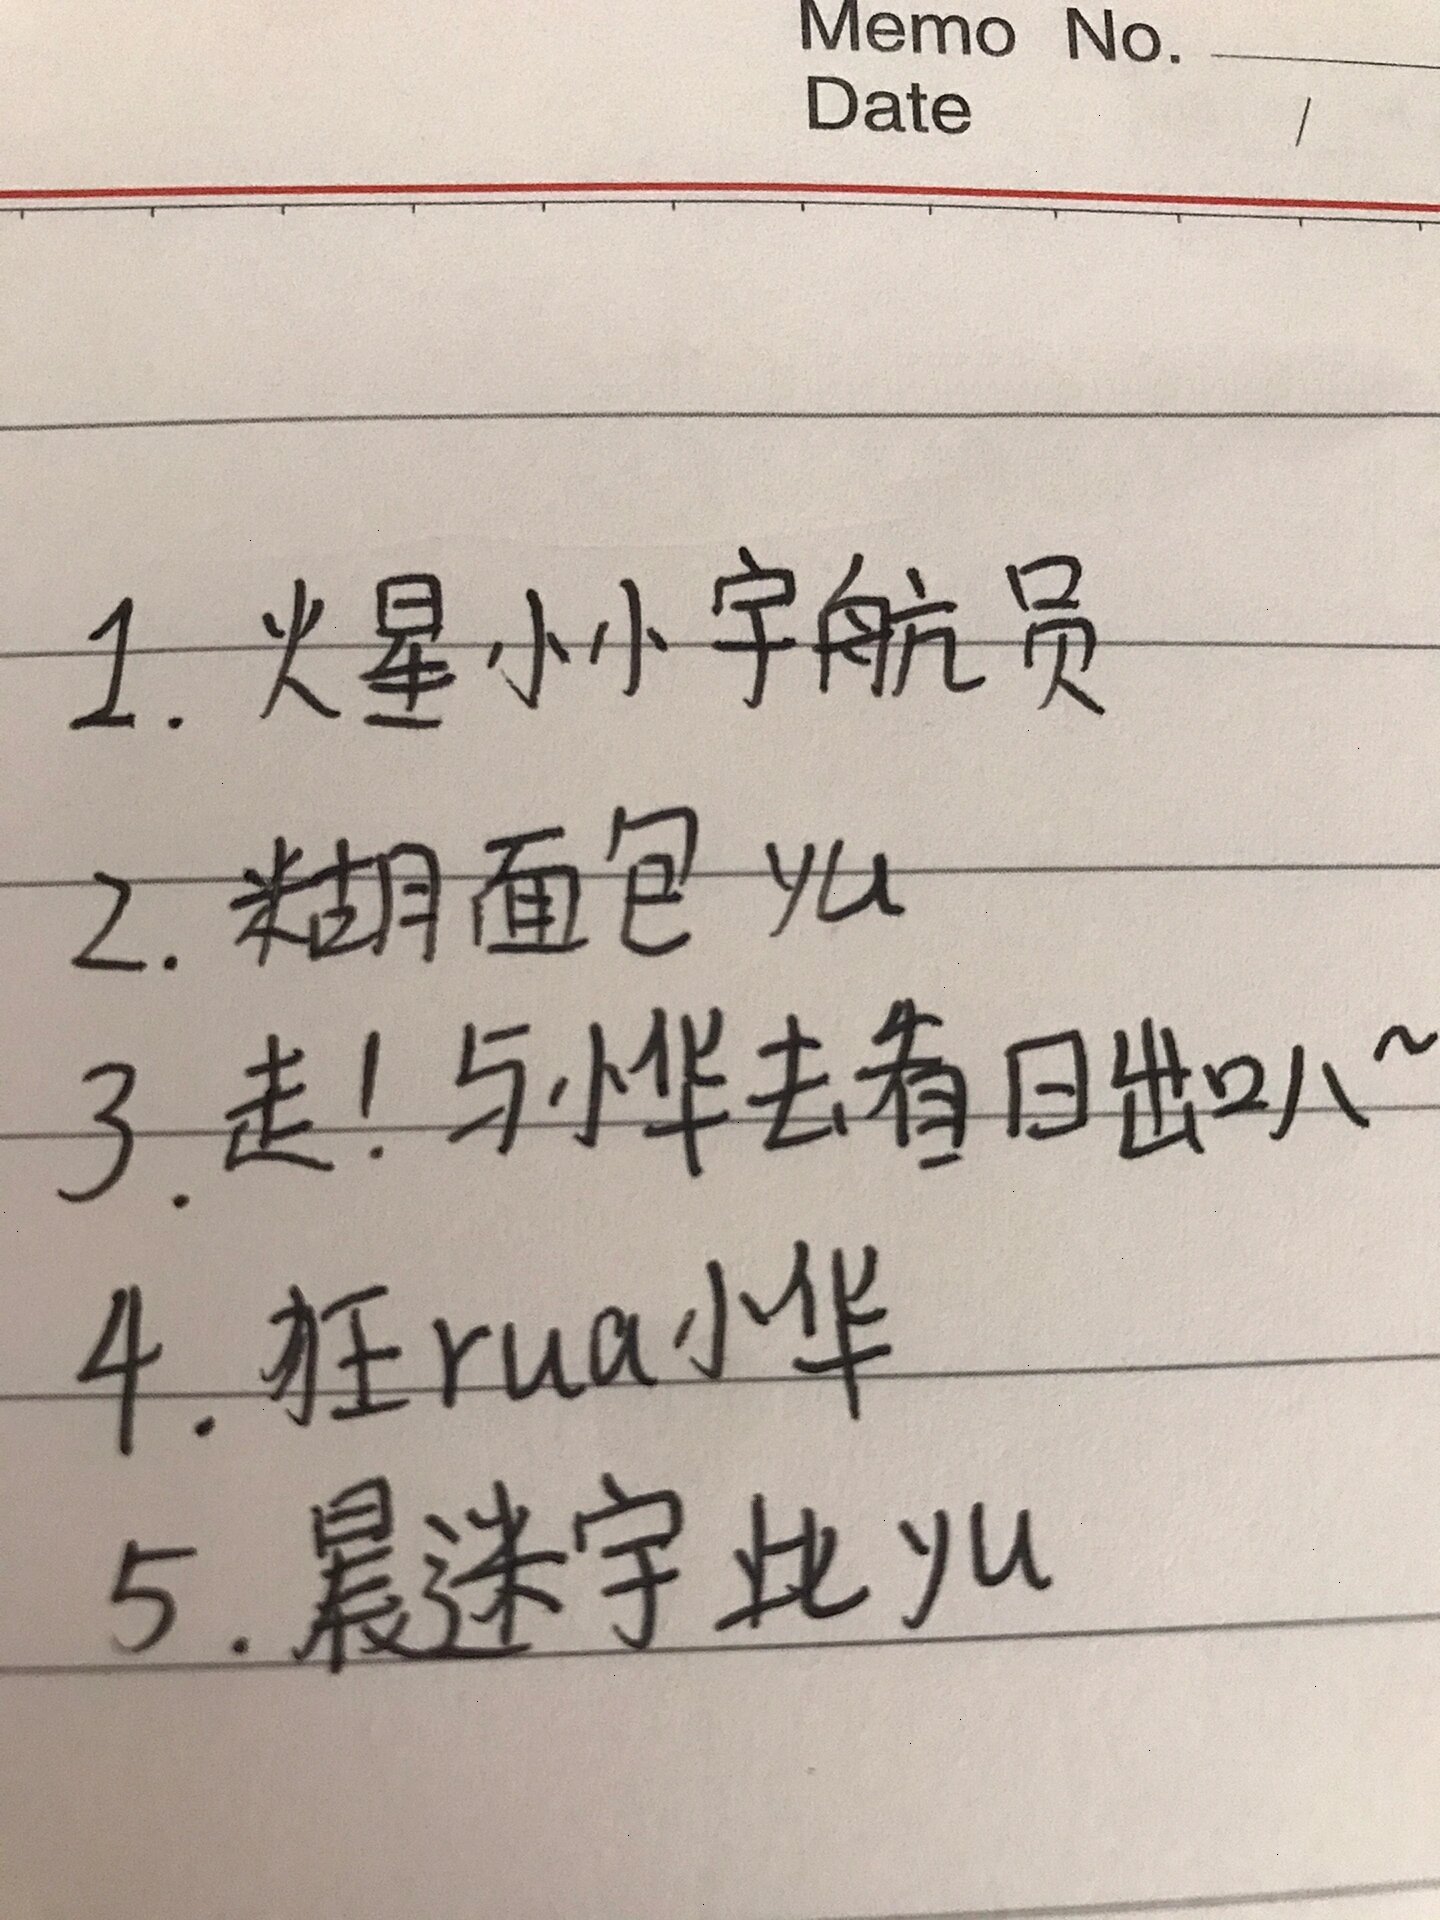 Memo No.
Date /
1. 火星小小宇航员
2. 糊面包yu
3. 走！与小华去看日出叭~
4. 狂rua小华
5. 晨迷宇比yu